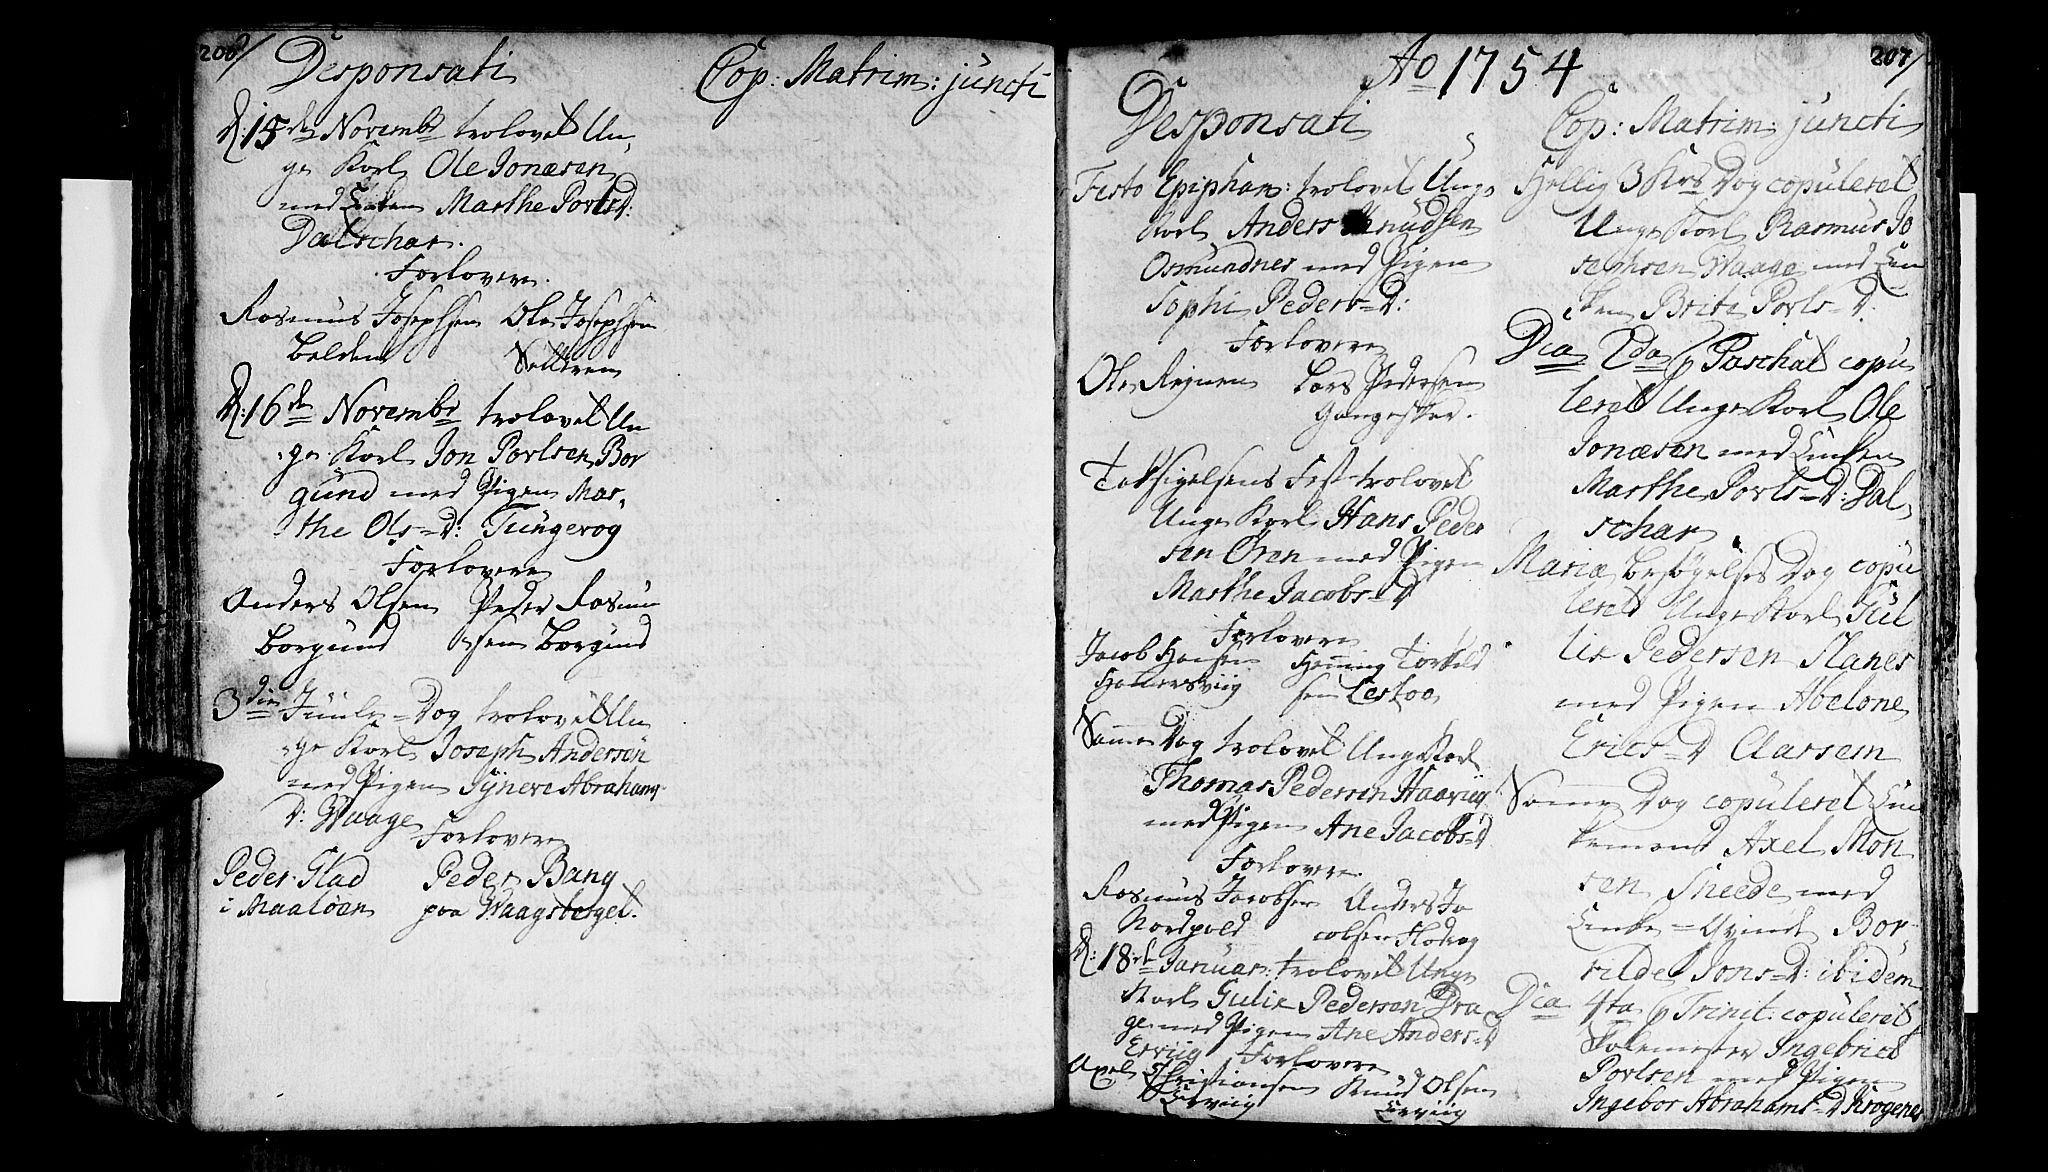 206/
Desponsati
Cop: Matrim: juncti
D: 15de Novembr trolovet Un,
ge Karl Ole Jonæsen
med Enken Marthe Povls D:
Dalschar.
Forlovere.
Rasmus Josephsen Ole Josephsen
Belden Vattrem
D: 16de Novembr trolovet Un
ge Karl Jon Povlsen Bor
gund med Pigen Mar,
the Ols=D: Tungevog
Forlovere
Anders Olsen Peder Rasmu
Borgund sen Borgund
3die Juule=Dag trolovet Un
ge Karl Joseph Andersen
med Pigen Syneve Abrahams
D: Waage
Forlovere
Peder Glad Peder Bang
i Maaløen paa Waagsberget.
Ao 1754
207/
Desponsati
Festo Epiphan: trolovet Unge
Karl Anders Knudsen
Osmundnes med Pigen
Sophi Peders=D:
Forlovere
Ole Lars Pedersen
Gangeskar.
Taksigelsens Fest trolovet
Unge Karl Hans Peder
sen Øren med Pigen
Marthe Jacobs=D
Forlovere
Jacob Hansen Henning Torkild
Hamersviig sen Lestoo
Samme Dag trolovet Unge Karl
Thomas Pedersen Haaviig
med Pigen Ane Jacobs=D
Forlovere.
Rasmus Jacobsen Anders Ja
Nordpold cobsen Flodeog
D: 18de Januar: trolovet Unge
Karl Gulix Pedersen Dra
ge med Pigen Ane Anders=D
Erviig Forlovere
Axel Christiansen Knud Olsen
Erviig Erviig
Cop: Matrim: juncti
Hellig 3 Kers Dag copuleret
Unge Karl Rasmus Jo
sephsen Waage med En
ken Brite Povls=D.
Dca 2da p Paschat copu
leret Unge Karl Ole
Jonæsen med Enken
Marthe Povls=D: Dal,
schar
Mariæ Besøgelses Dag copu
leret Unge Karl Gul
lix Pedersen Slanes
med Pigen Abelone
Erics=D Aarsem
Samme Dag copuleret En
kemand Axel Mon
sen Sneede med
Enke=Qvinde Bor,
rilde Jons=D: ibidem
Dca 4ta p Trinit: copuleret
Skolemester Ingebrict
Povlsen med Pigen
Ingebor Abrahams=D Krogenes